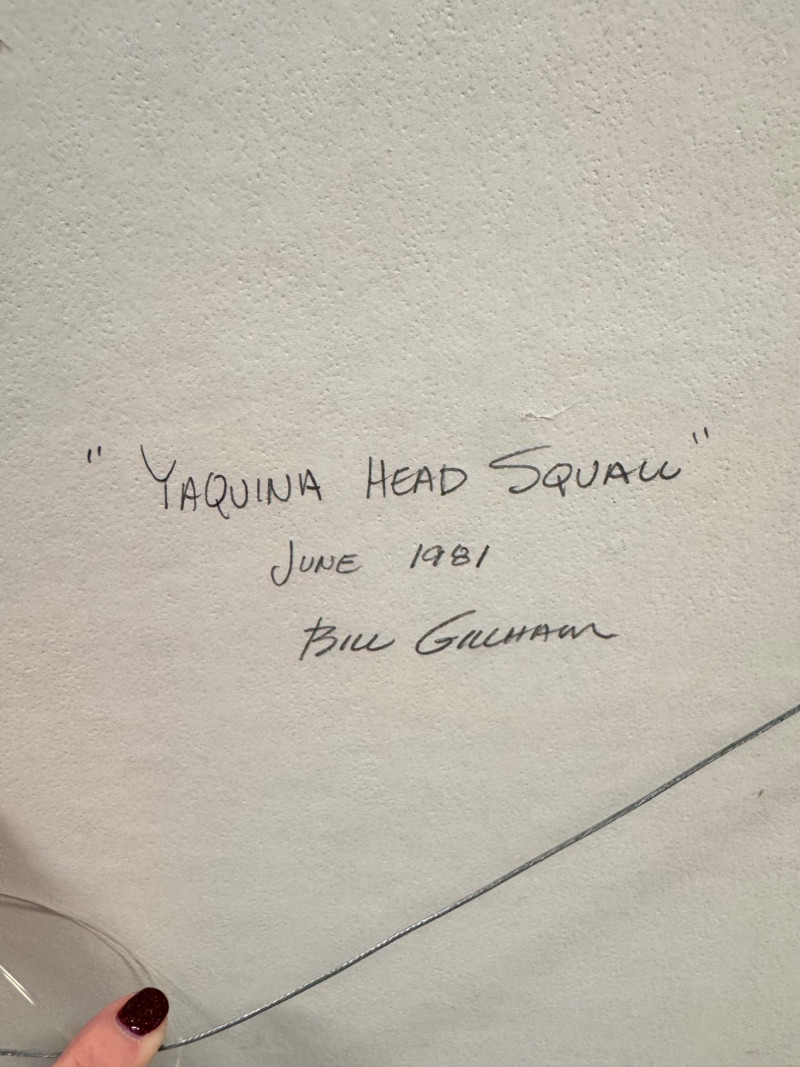 " YAQUINA HEAD SQUALL "
JUNE 1981
BILL GILHAM